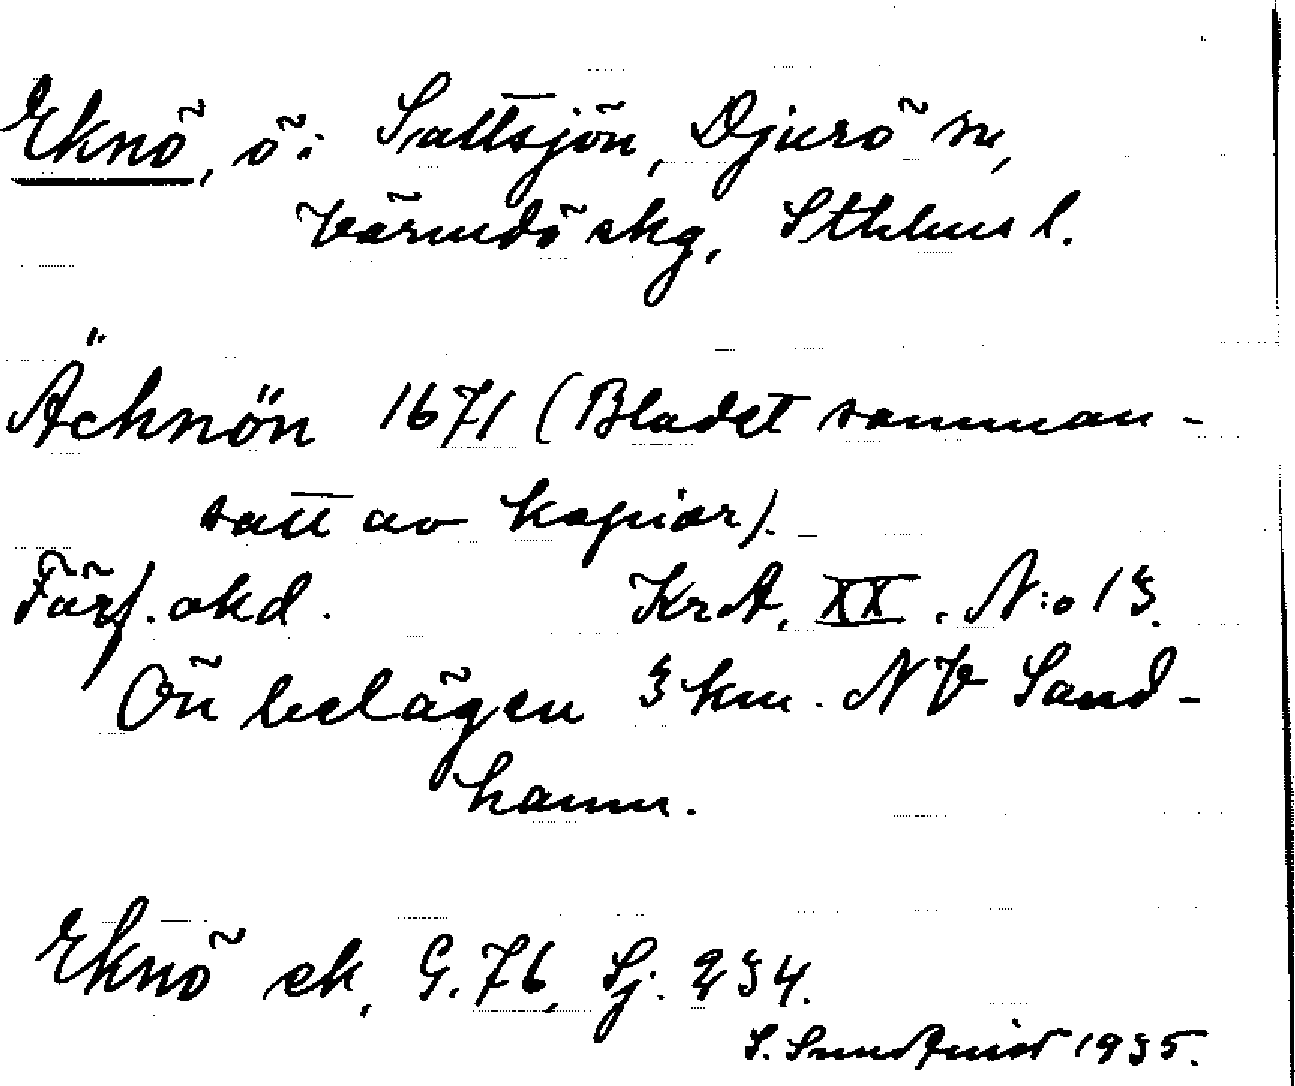 Eknö, ö i Saltsjön, Djurö sn,
Värmdö skg, Sthlms l.
Ächnön 1671 (Bladet samman-
satt av kopior).
Förf. okd. KrA, XX. N:o 13.
Ön belägen 3 km. NV Sand-
hamn.
Eknö ek, G. 76, Sj. 234.
S. Sundqvist 1935.